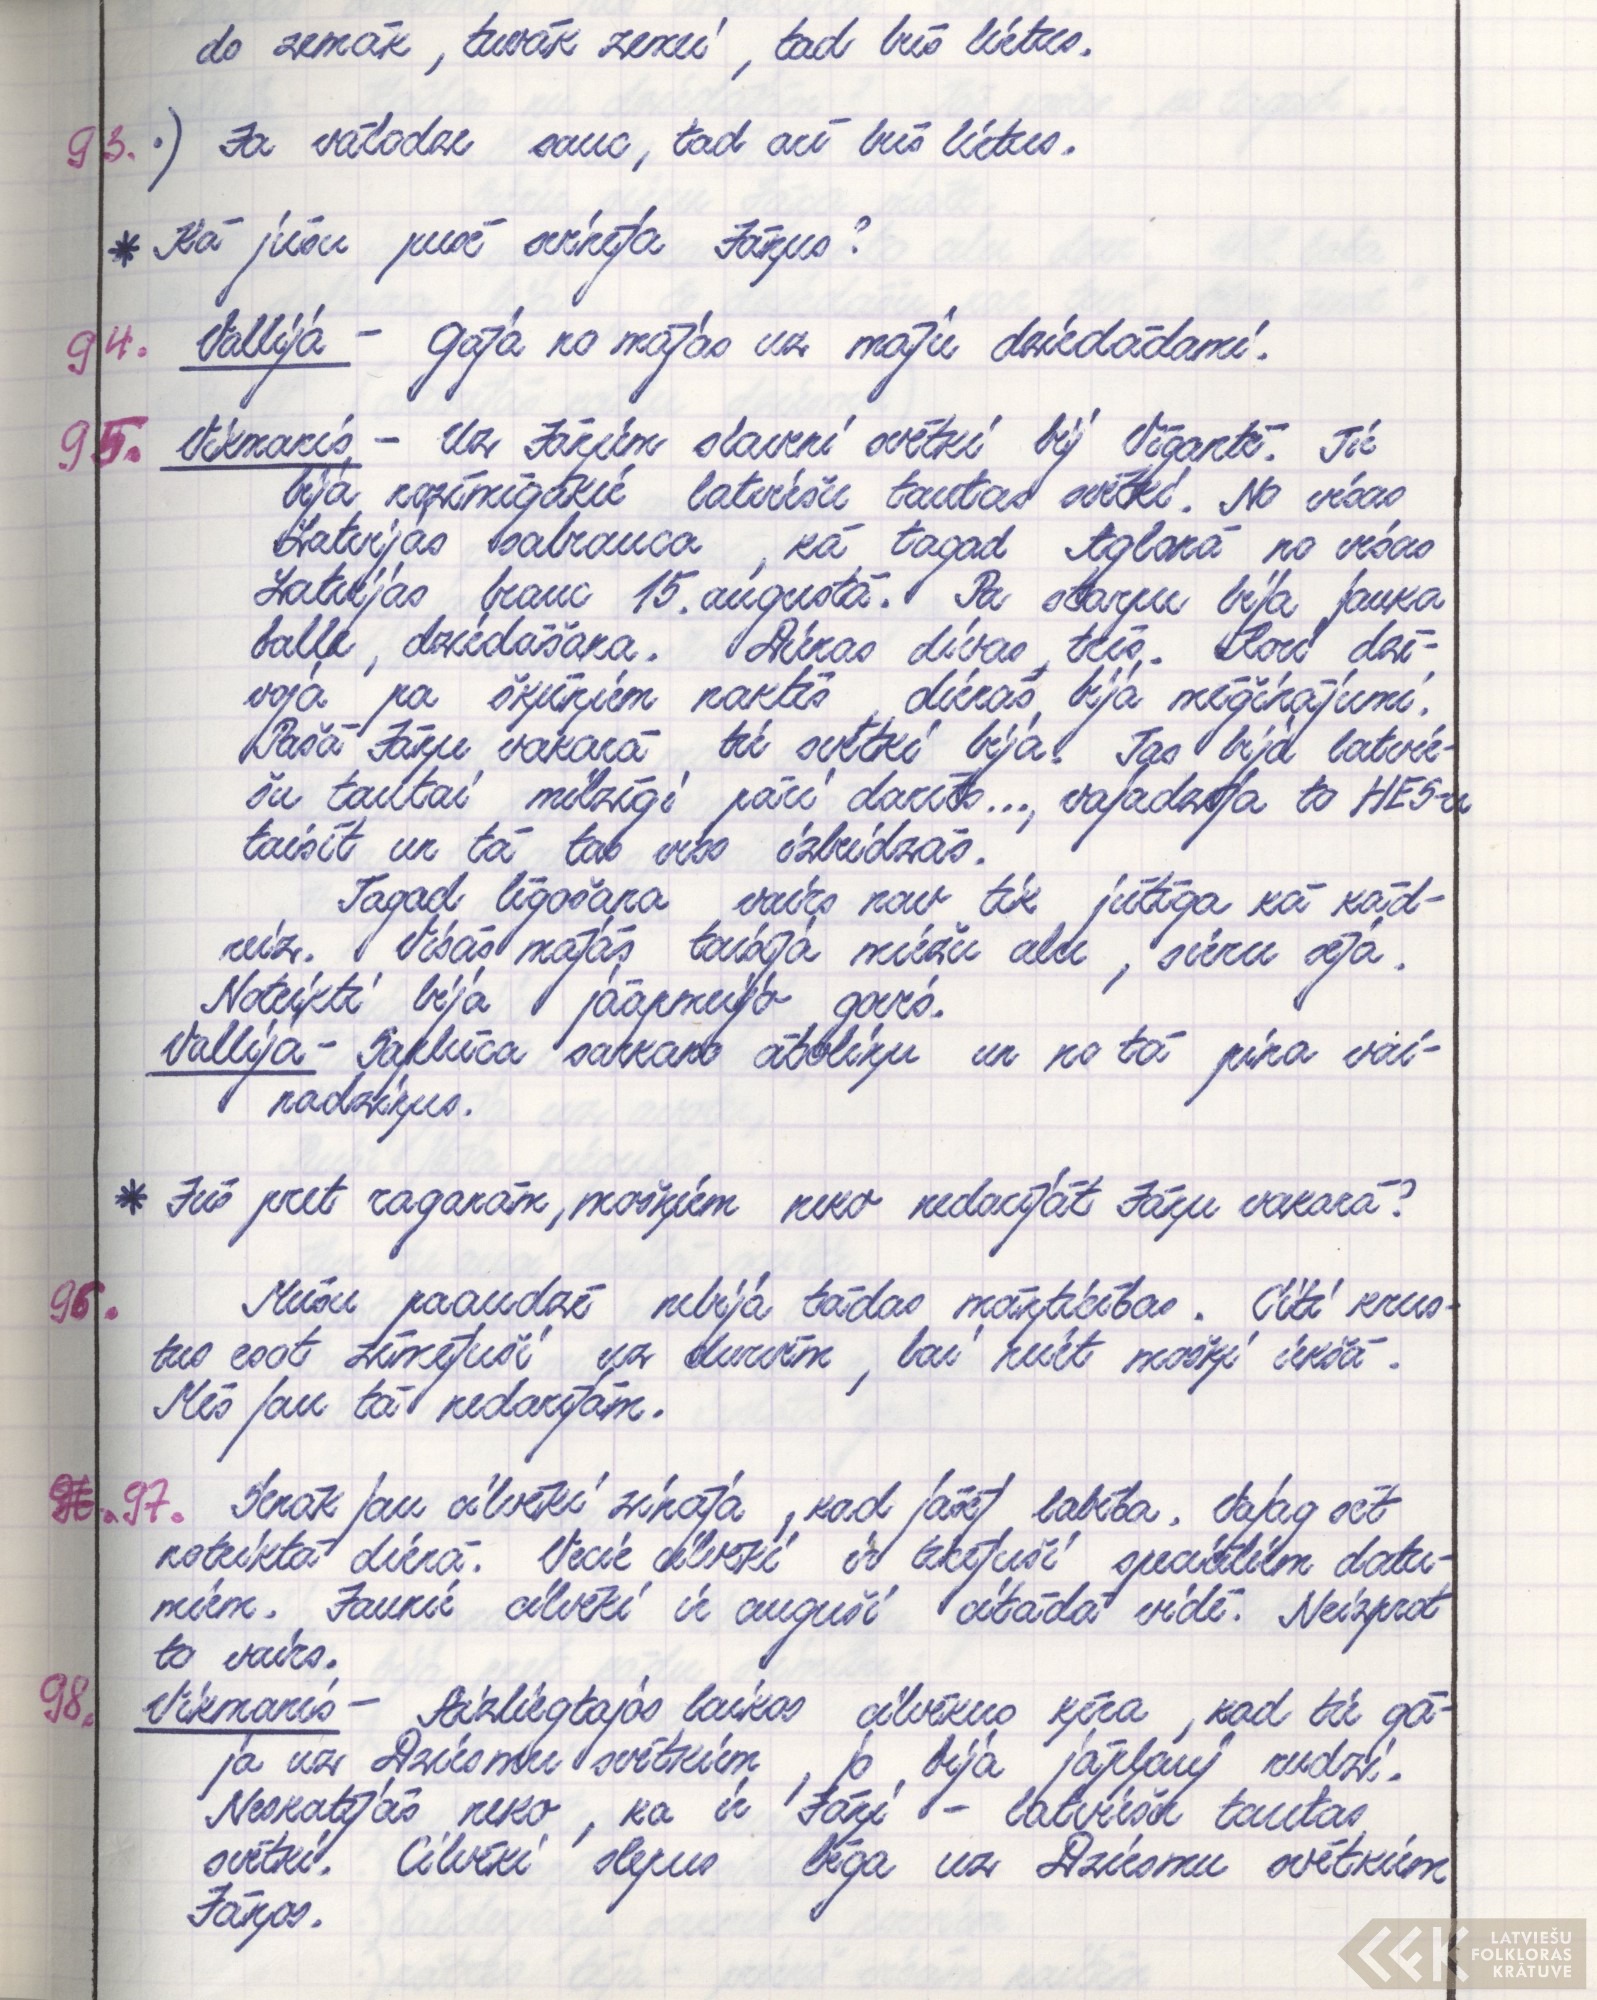 do zemāk, tuvāk zemei, tad būs lietus.
93. .) Ja vālodze sauc, tad arī būs lietus.
* Kā jūsu pusē svinēja Jāņus?
94. Vallija - Gāja no mājas uz māju dziedādami.
95. Vikmanis - Uz Jāņiem slaveni svētki bij Vīgantē. Tie
bija nozīmīgākie latviešu tautas svētki. No visas
Latvijas sabrauca, kā tagad Aglonā no visas
Latvijas brauc 15. augustā. Pa starpu bija jauka
balle, dziedāšana. Dienas divas, trīs. Kori dzī-
voja pa šķūņiem naktīs, dienās bija mēģinājumi.
Pašā Jāņu vakarā tie svētki bija. Tas bija latvie-
šu tautai milzīgi pāri darīts..., vajadzēja to HES-u
taisīt un tā tas viss izbeidzās.
Tagad līgošana vairs nav tik jūtīga kā kād-
reiz. Visās mājās taisīja miežu alu, sieru sēja.
Noteikti bija jāapmeijo govis.
Vallija - Saplūca sarkano āboliņu un no tā pina vai-
nadziņus.
* Jūs pret raganām, mošķiem neko nedarījāt Jāņu vakarā?
96. Mūsu paaudzē nebija tādas māņticības. Citi krus-
tus esot zīmējuši uz durvīm, lai neiet mošķi iekšā.
Mēs jau tā nedarījām.
97. Senāk jau cilvēki zināja, kad jāsēj labība. Vajag sēt
noteiktā dienā. Vecie cilvēki ir ticējuši speciāliem datu-
miem. Jaunie cilvēki ir auguši citādā vidē. Neizprot
to vairs.
98. Vikmanis - Aizliegtajos laikos cilvēkus ķēra, kad tie gā-
ja uz Dziesmu svētkiem, jo bija jāpļauj rudzi.
Neskatījās neko, ka ir Jāņi - latviešu tautas
svētki. Cilvēki slepus bēga uz Dziesmu svētkiem
Jāņos.
LATVIEŠU
FOLKLORAS
KRĀTUVE